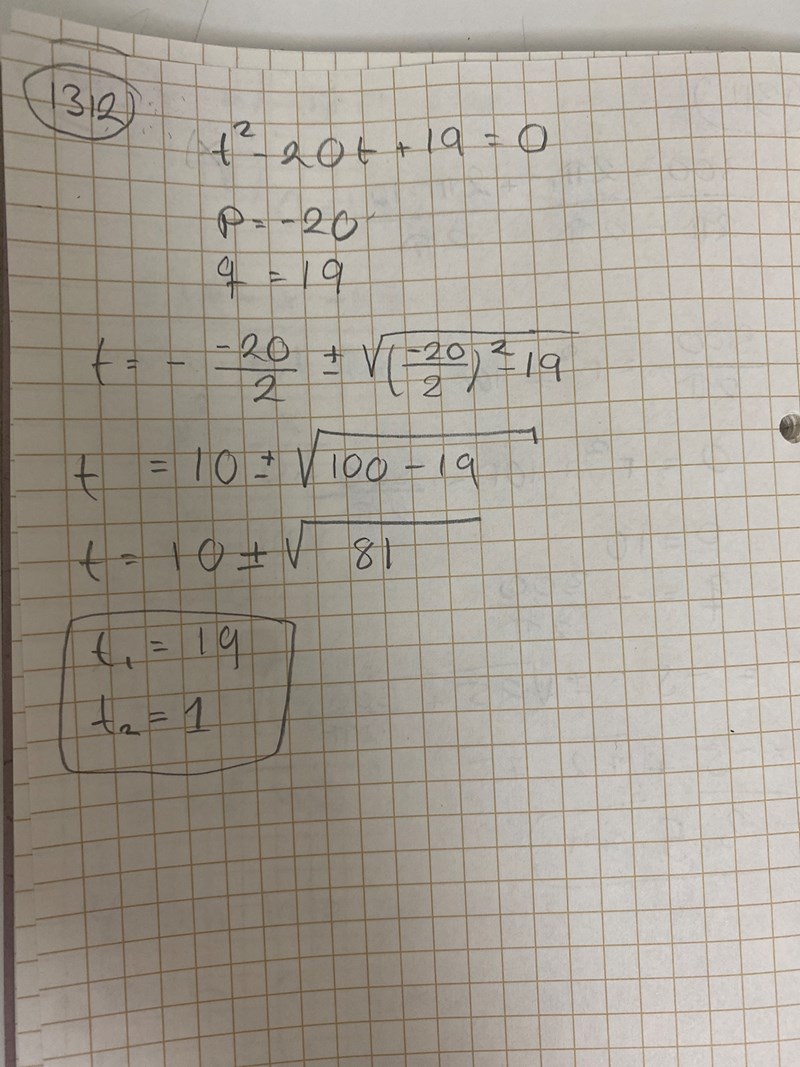 1312
t² - 20t + 19 = 0
p = -20
q = 19
t = - -20/2 ± √((-20/2)² - 19)
t = 10 ± √(100 - 19)
t = 10 ± √81
t₁ = 19
t₂ = 1